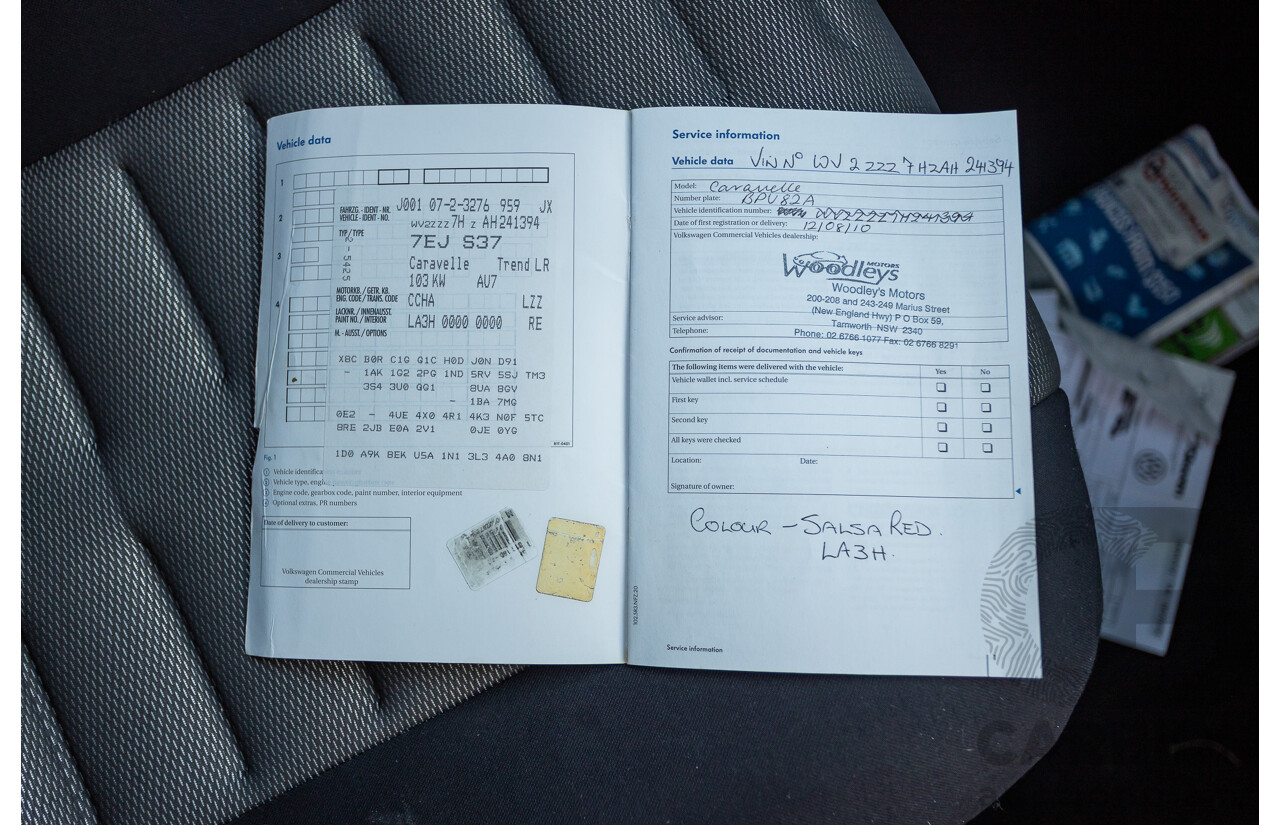 Vehicle data
1
2
3
4
FAHRZG.-IDENT-NR.
VEHICLE-IDENT-NO.
J001 07-2-3276 959 JX
WV2ZZZ7H Z AH241394
TYP / TYPE
7EJ S37
Caravelle Trend LR
103 KW AU7
MOTORKB. / GETR. KB.
ENG. CODE / TRANS. CODE
CCHA LZZ
LACKNR. / INNENAUSST.
PAINT NO. / INTERIOR
LA3H 0000 0000 RE
M.-AUSST. / OPTIONS
XBC B0R C1G G1C H0D J0N D91
- 1AK 1G2 2PG 1ND 5RV 5SJ TM3
3S4 3U0 GG1 8UA 8GV
- 1BA 7MG
0E2 - 4UE 4X0 4R1 4K3 N0F 5TC
8RE 2JB E0A 2V1 0JE 0YG
1D0 A9K BEK U5A 1N1 3L3 4A0 8N1
Fig. 1
1 Vehicle identifica
2 Vehicle type, engi
3 Engine code, gearbox code, paint number, interior equipment
4 Optional extras, PR numbers
Date of delivery to customer:
Volkswagen Commercial Vehicles
dealership stamp
Service information
Vehicle data VIN Nº WV2ZZZ7HZAH241394
Model: Caravelle
Number plate: BPV82A
Vehicle identification number: WV2ZZZ7H241394
Date of first registration or delivery: 12/08/10
Volkswagen Commercial Vehicles dealership:
Woodleys MOTORS
Woodley's Motors
200-208 and 243-249 Marius Street
(New England Hwy) P O Box 59,
Tamworth NSW 2340
Phone: 02 6766 1077 Fax: 02 6766 8291
Service advisor:
Telephone:
Confirmation of receipt of documentation and vehicle keys
The following items were delivered with the vehicle: Yes No
Vehicle wallet incl. service schedule
First key
Second key
All keys were checked
Location: Date:
Signature of owner:
COLOUR - SALSA RED.
LA3H.
102.5R3.NFZ.20
Service information
1